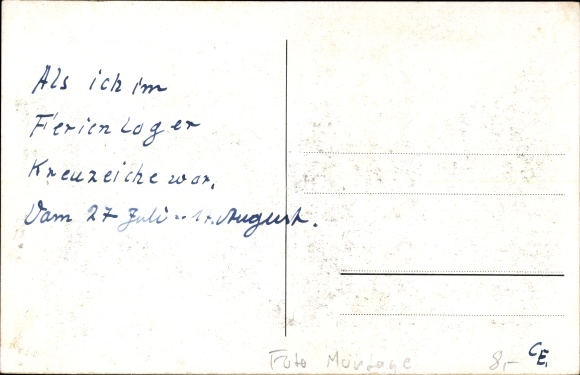 Als ich im
Ferienlager
Kreuzeiche war.
Vom 27 Juli - August.
Foto Montage
8,-
CE.